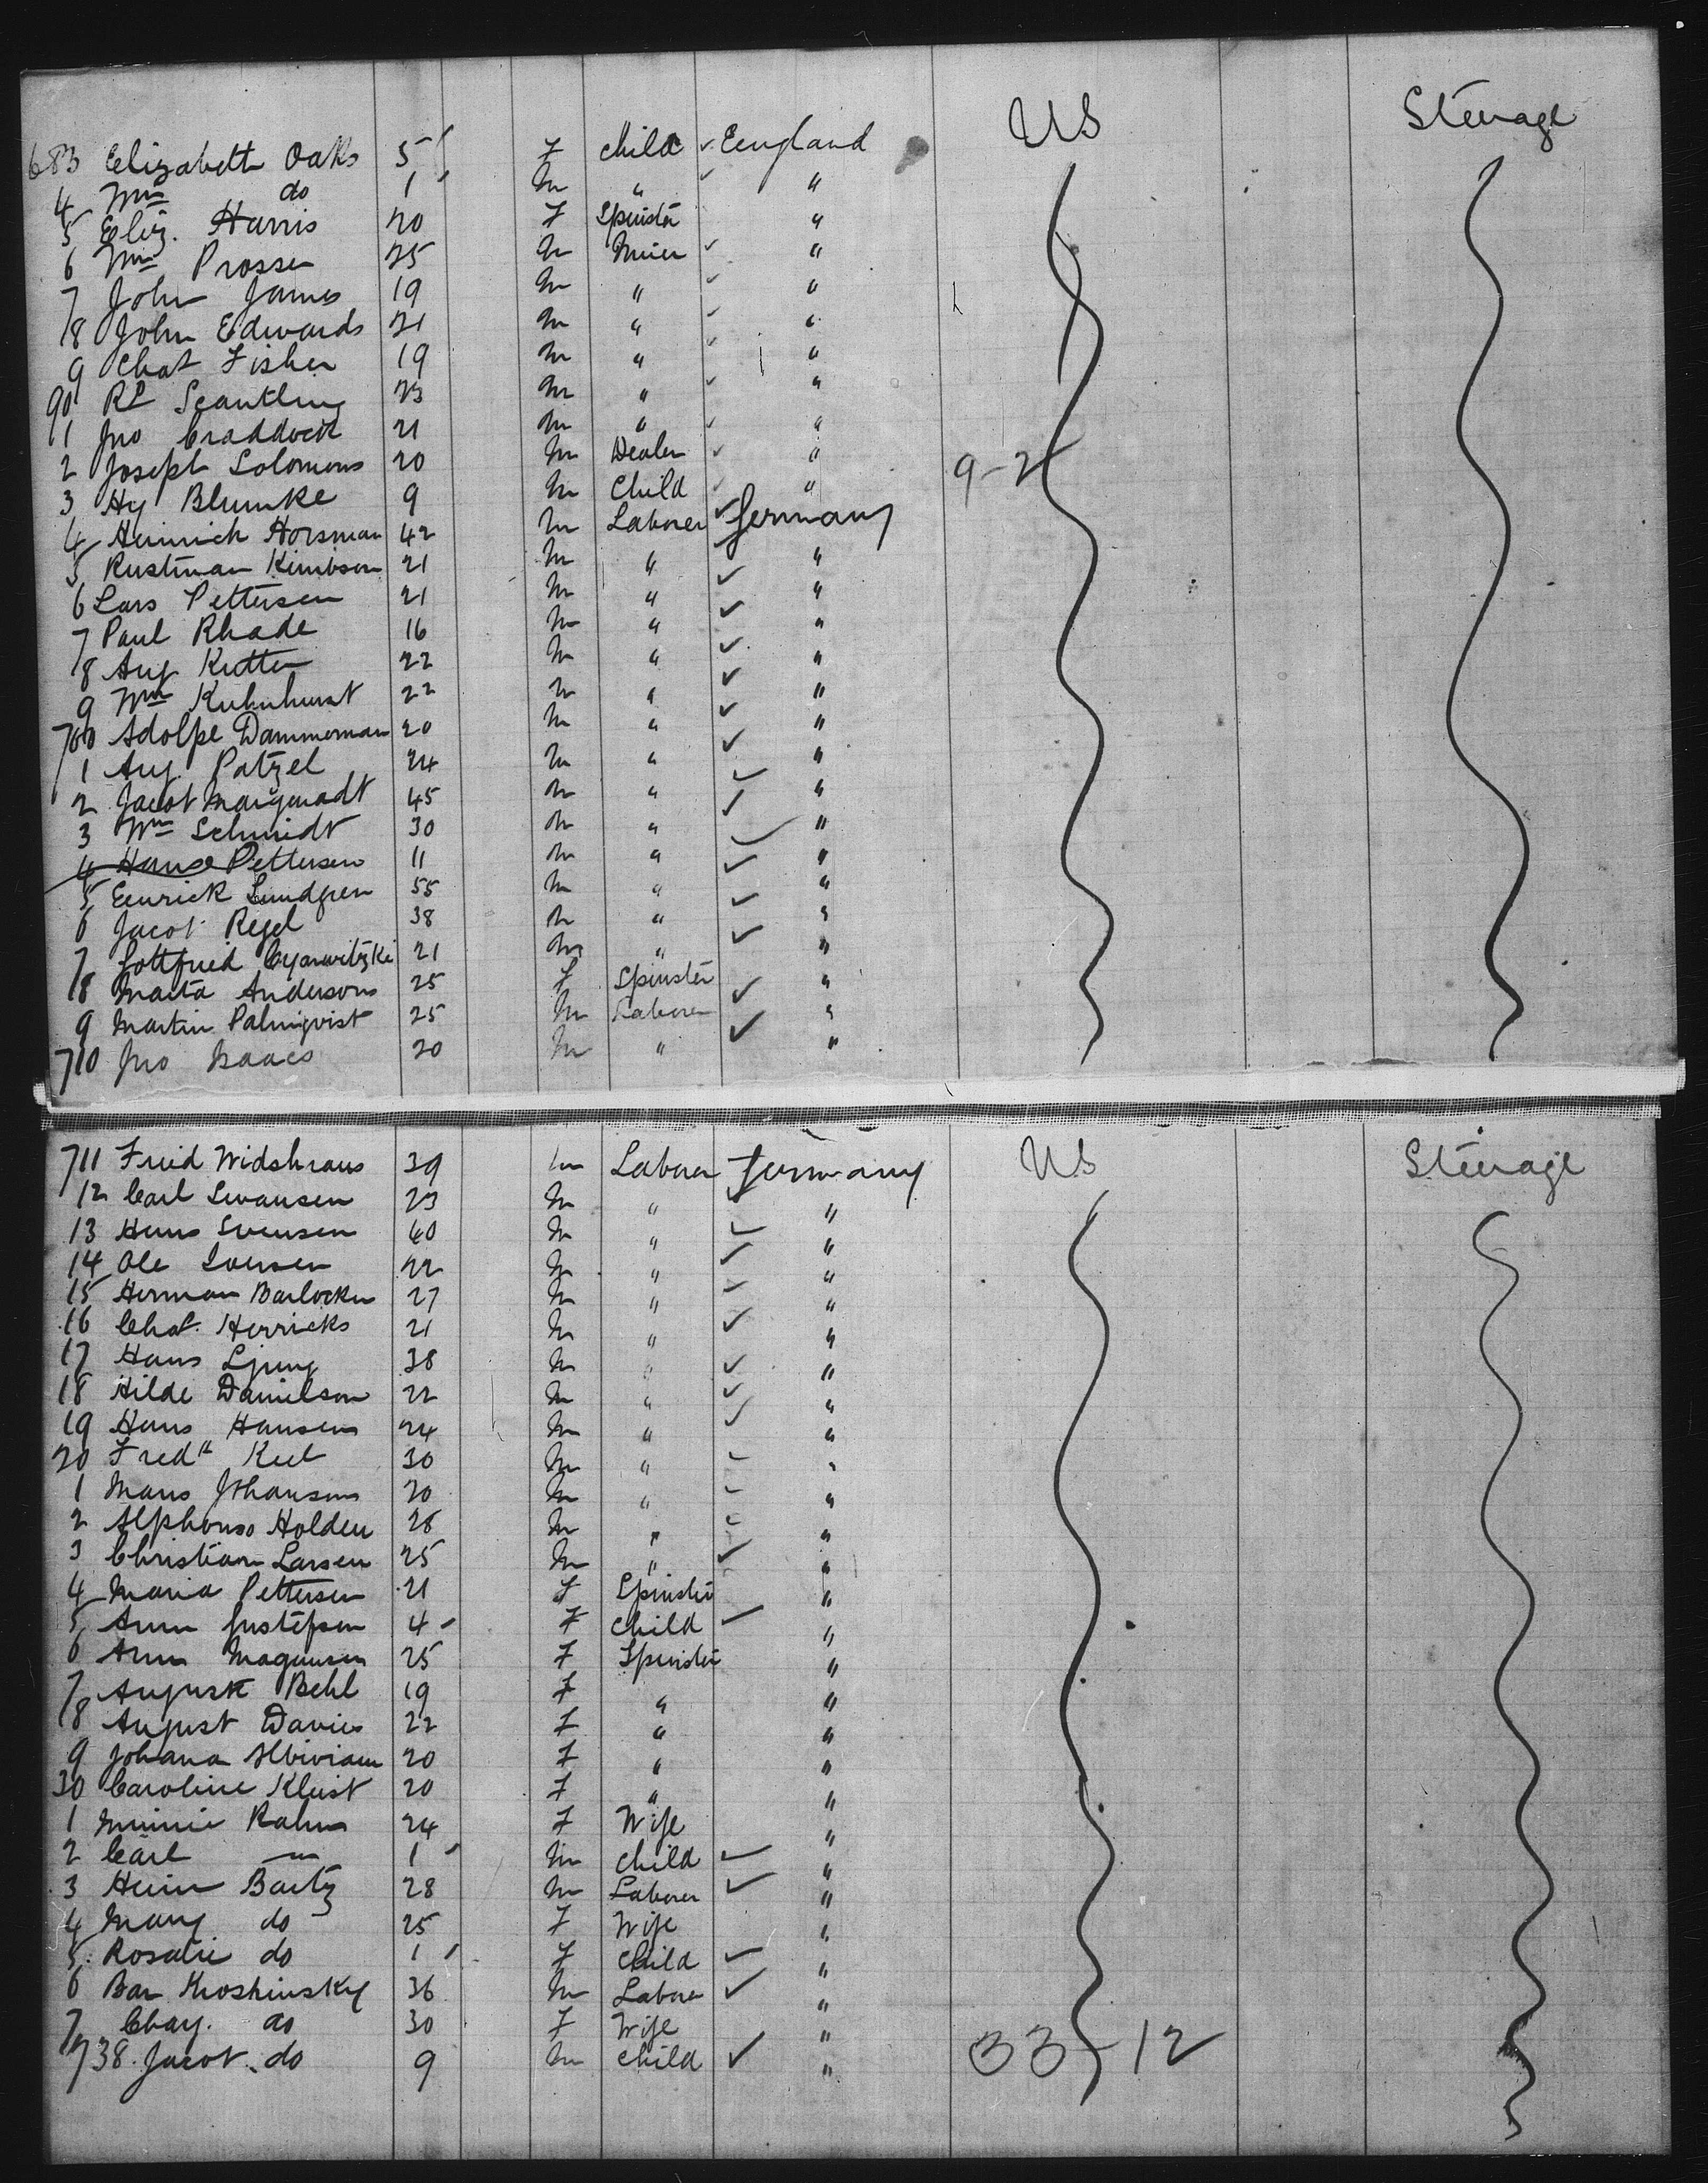 US Steerage
683 Elizabeth Oaks 5 F Child ✓ England
4 Wm do 1 M " ✓ "
5 Eliz. Harris 20 F Spinster "
6 Wm Prosser 25 M Miner ✓ "
7 John James 19 M " ✓ "
8 John Edwards 21 M " ✓ "
9 Chas Fisher 19 M " ✓ "
90 Rd Scantling 23 M " ✓ "
1 Jno Craddock 21 M " ✓ "
2 Joseph Solomons 20 M Dealer ✓ " 9-2
3 Hy Blumke 9 M Child ✓ "
4 Heinrich Horsman 42 M Laborer ✓ Germany
5 Rustman Kimbson 21 M " "
6 Lars Pettersen 21 M " ✓ "
7 Paul Rhade 16 M " ✓ "
8 Aug Kutter 22 M " ✓ "
9 Wm Kuhnhurst 22 M " ✓ "
700 Adolpe Dammerman 20 M " ✓ "
1 Aug. Patzel 24 M " ✓ "
2 Jacob Marguardt 45 M " ✓ "
3 Wm Schmidt 30 M " ✓ "
4 Hans Pettersen 11 M " ✓ "
5 Eenrick Lundgren 55 M " ✓ "
6 Jacob Regel 38 M " ✓ "
7 Gottfried 21 M " ✓ "
8 Marta Andersons 25 F Spinster "
9 Martin Palmqvist 25 M Laborer ✓ "
710 Jno Isaacs 20 M " ✓ "
US Steerage
711 Fried Widstraus 39 M Laborer Germany
12 Carl Swansen 23 M " ✓ "
13 Hans Svensen 40 M " ✓ "
14 Ole Iversen 22 M " ✓ "
15 Herman Barlocker 27 M " ✓ "
16 Chas. Herricks 21 M " ✓ "
17 Hans Ljung 38 M " ✓ "
18 Hilde Danielson 22 M " ✓ "
19 Hans Hansen 24 M " ✓ "
20 Fredk Keel 30 M " ✓ "
1 Mans Johansons 20 M " ✓ "
2 Alphonso Holden 28 M " ✓ "
3 Christian Larsen 25 M " ✓ "
4 Maria Pettersen 21 F Spinster "
5 Ann Gustefsen 4 F Child ✓ "
6 Ann Magnusen 25 F Spinster "
7 August Behl 19 F " "
8 August Davies 22 F " "
9 Johana 20 F " "
30 Caroline Kleist 20 F " "
1 Minnie Rahms 24 F Wife "
2 Carl — 1 M Child ✓ "
3 Hein Bartz 28 M Laborer ✓ "
4 Mary do 25 F Wife "
5 Rosalie do 1 F Child ✓ "
6 Bar Kroshinsky 36 M Labore ✓ "
7 Chay. do 30 F Wife "
738. Jacob. do 9 M Child ✓ " 33-12